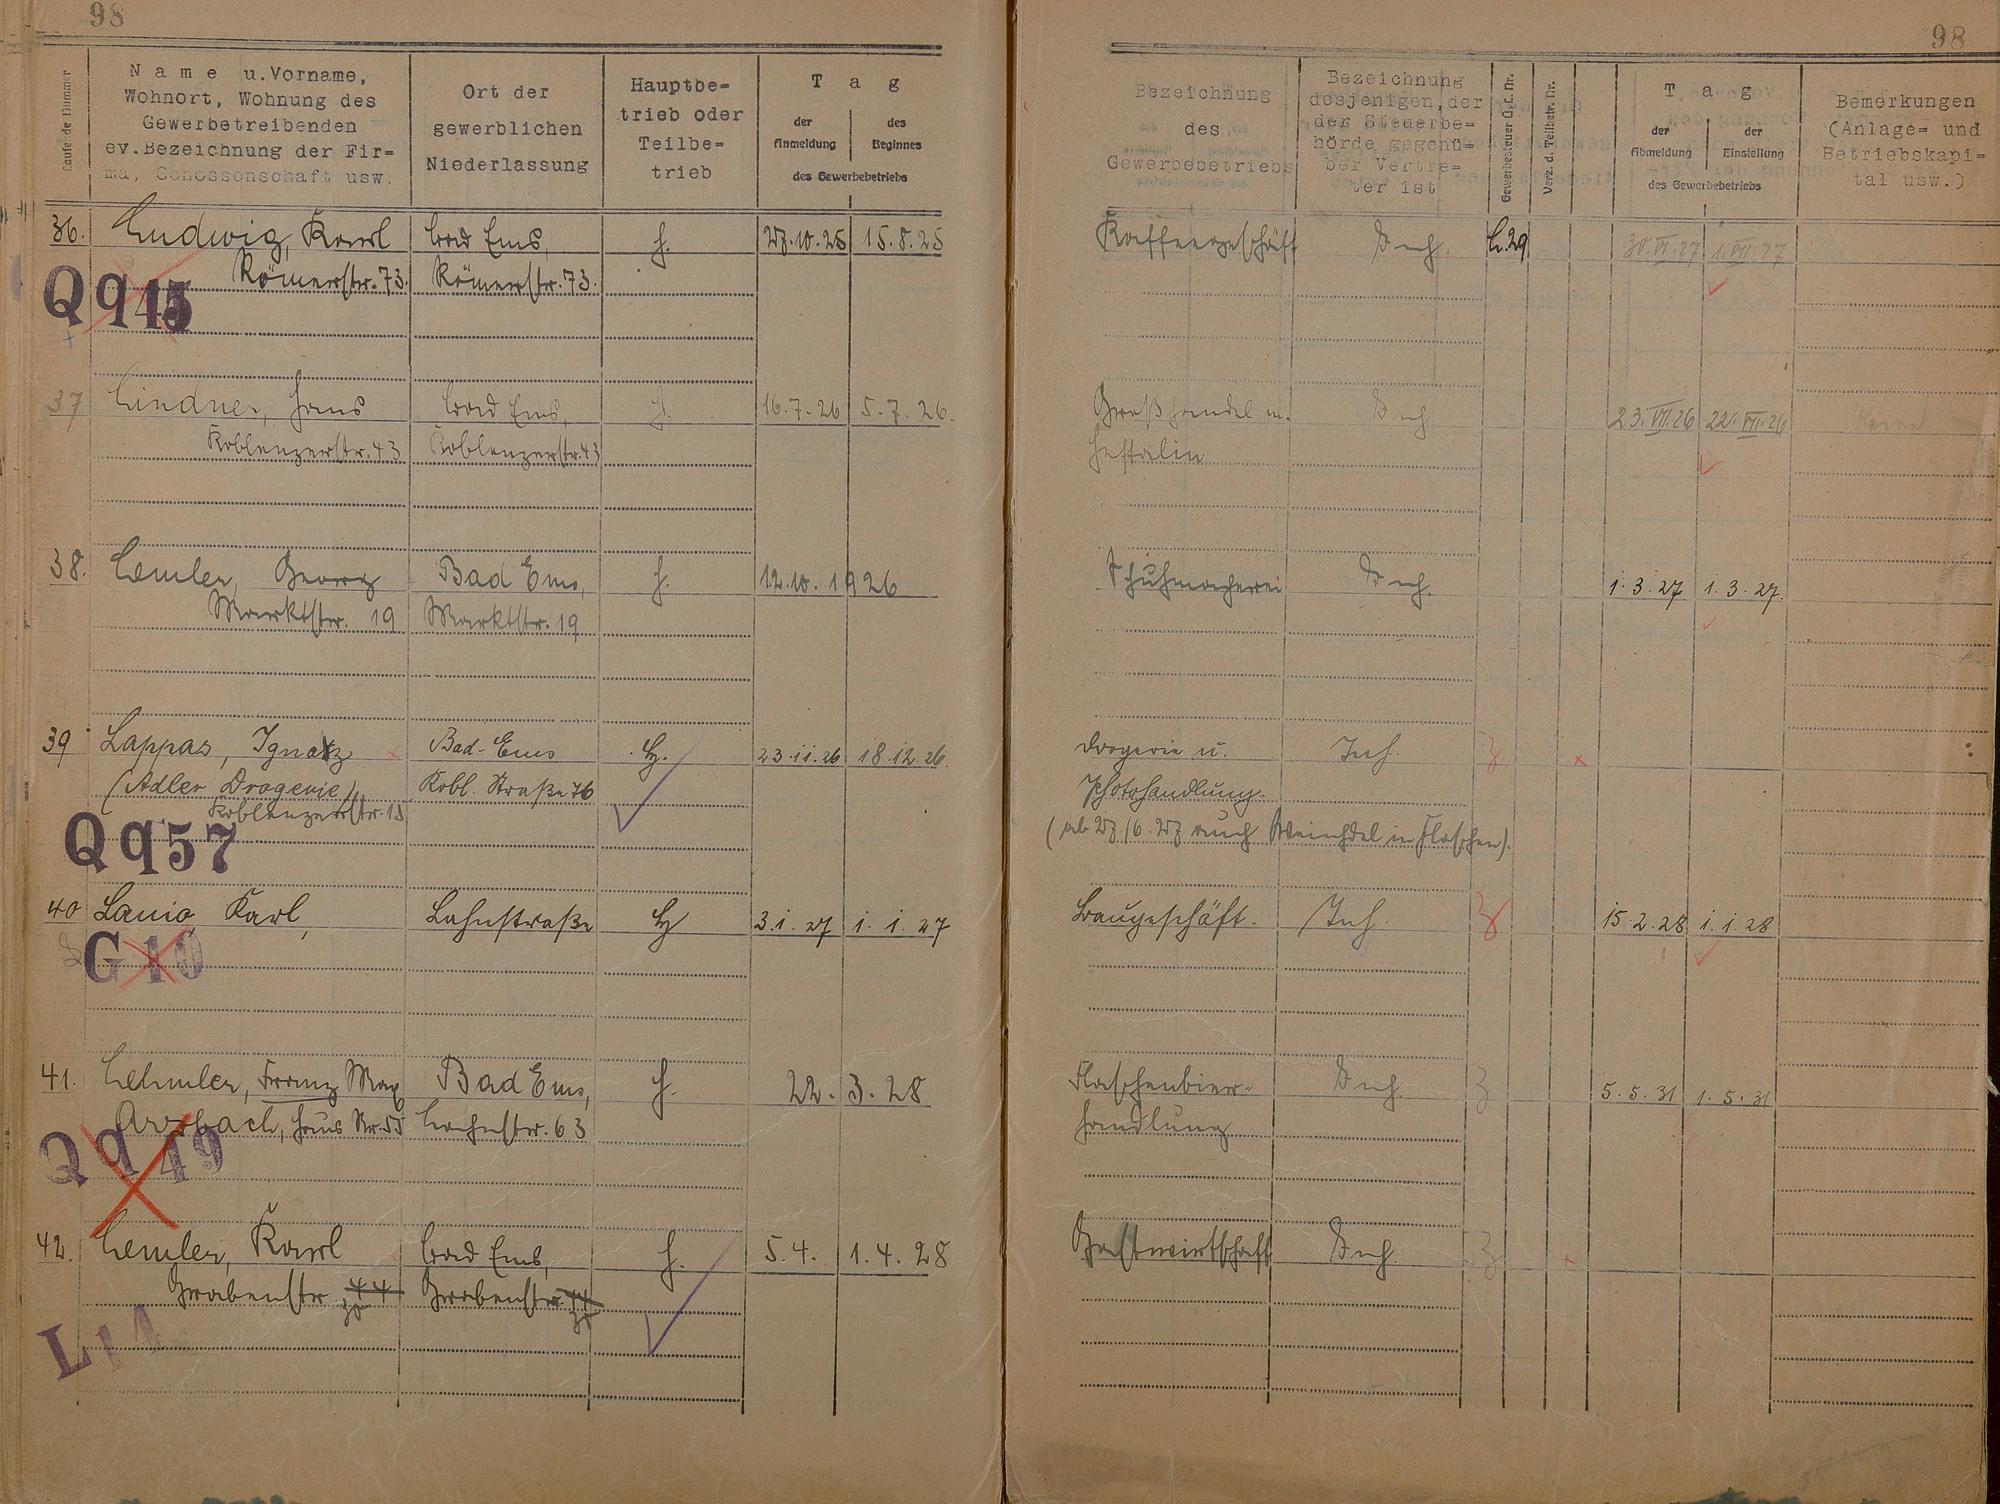 98
98
Laufende Nummer
Name u. Vorname,
Wohnort, Wohnung des
Gewerbetreibenden
ev. Bezeichnung der Fir-
ma, Genossenschaft usw.
Ort der
gewerblichen
Niederlassung
Hauptbe-
trieb oder
Teilbe-
trieb
Tag
der
Anmeldung
des
Beginnes
des Gewerbebetriebs
Bezeichnung
des
Gewerbebetriebs
Bezeichnung
desjenigen, der
der Steuerbe-
hörde gegenü-
ber Vertre-
ter ist
Gewerbesteuer Ü.f. Nr.
Verz. d. Teilbetr. Nr.
Tag
der
Abmeldung
der
Einstellung
des Gewerbebetriebs
Bemerkungen
(Anlage= und
Betriebskapi-
tal usw.)
36. Ludwig, Karl Bad Ems, H. 27.10.25 15.8.25 Kaffeegeschäft Inh. L.29 30.VI.27 1.VII.27
Römerstr. 73. Römerstr. 73.
Q 9 45
37 Lindner, Hans Bad Ems, H. 16.7.26 5.7.26. Großhandel m. Inh 23.VII.26 22.VII.26
Koblenzerstr. 43 Koblenzerstr. 43
38. Lemler, Georg Bad Ems, H. 12.10.1926 Schuhmacherei Inh. 1.3.27 1.3.27.
Marktstr. 19 Marktstr. 19
39 Lappas, Ignatz Bad-Ems H. 23.11.26 18.12.26. Drogerie u. Inh.
(Adler Drogerie) Kobl. Straße 76 Photohandlung.
Koblenzerstr. 15
(ab 27/6.27 auch Weinhdel in Flaschen).
Q 9 57
40 Lanio, Karl, Lahnstraße H 3.1.27 1.1.27 Baugeschäft. Inh. 15.2.28 1.1.28
G 10
41. Lehmler, Franz Max Bad Ems, H. 22.3.28 Flaschenbier- Inh. 5.5.31 1.5.31
Arzbach, Haus Nr. 55 Lahnstr. 63 handlung
Q 9 49
42. Lemler, Karl Bad Ems, H. 5.4. 1.4.28 Gastwirtschaft Inh.
Grabenstr. 44 Grabenstr. 44
L 14